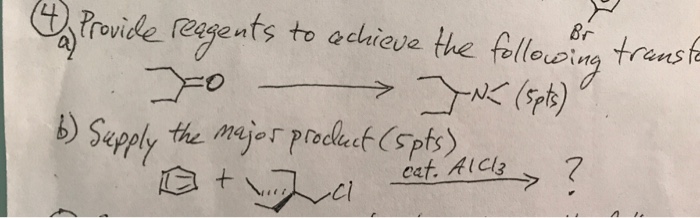 ④ Provide reagents to achieve the following transf
Br
a)
=O → N< (5pts)
b) Supply the major product (5pts)
+ Cl cat. AlCl3 → ?